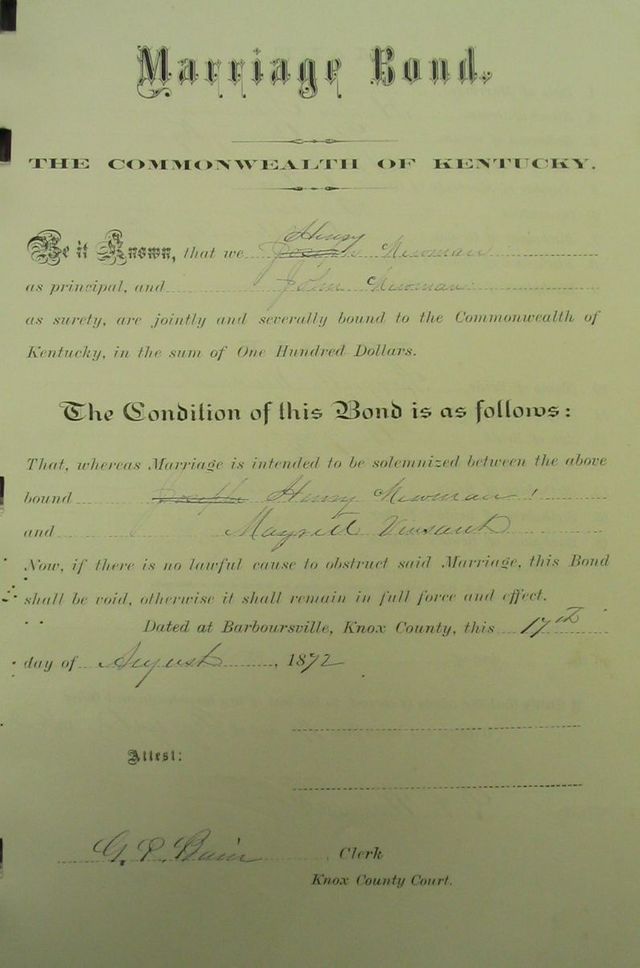 Marriage Bond.
THE COMMONWEALTH OF KENTUCKY.
Henry
Be it Known, that we Joseph Newman
as principal, and John Newman
as surety, are jointly and severally bound to the Commonwealth of
Kentucky, in the sum of One Hundred Dollars.
The Condition of this Bond is as follows:
That, whereas Marriage is intended to be solemnized between the above
bound Joseph Henry Newman
and
Now, if there is no lawful cause to obstruct said Marriage, this Bond
shall be void, otherwise it shall remain in full force and effect.
Dated at Barboursville, Knox County, this 17th
day of August, 1872
Attest:
G. P. Clerk
Knox County Court.